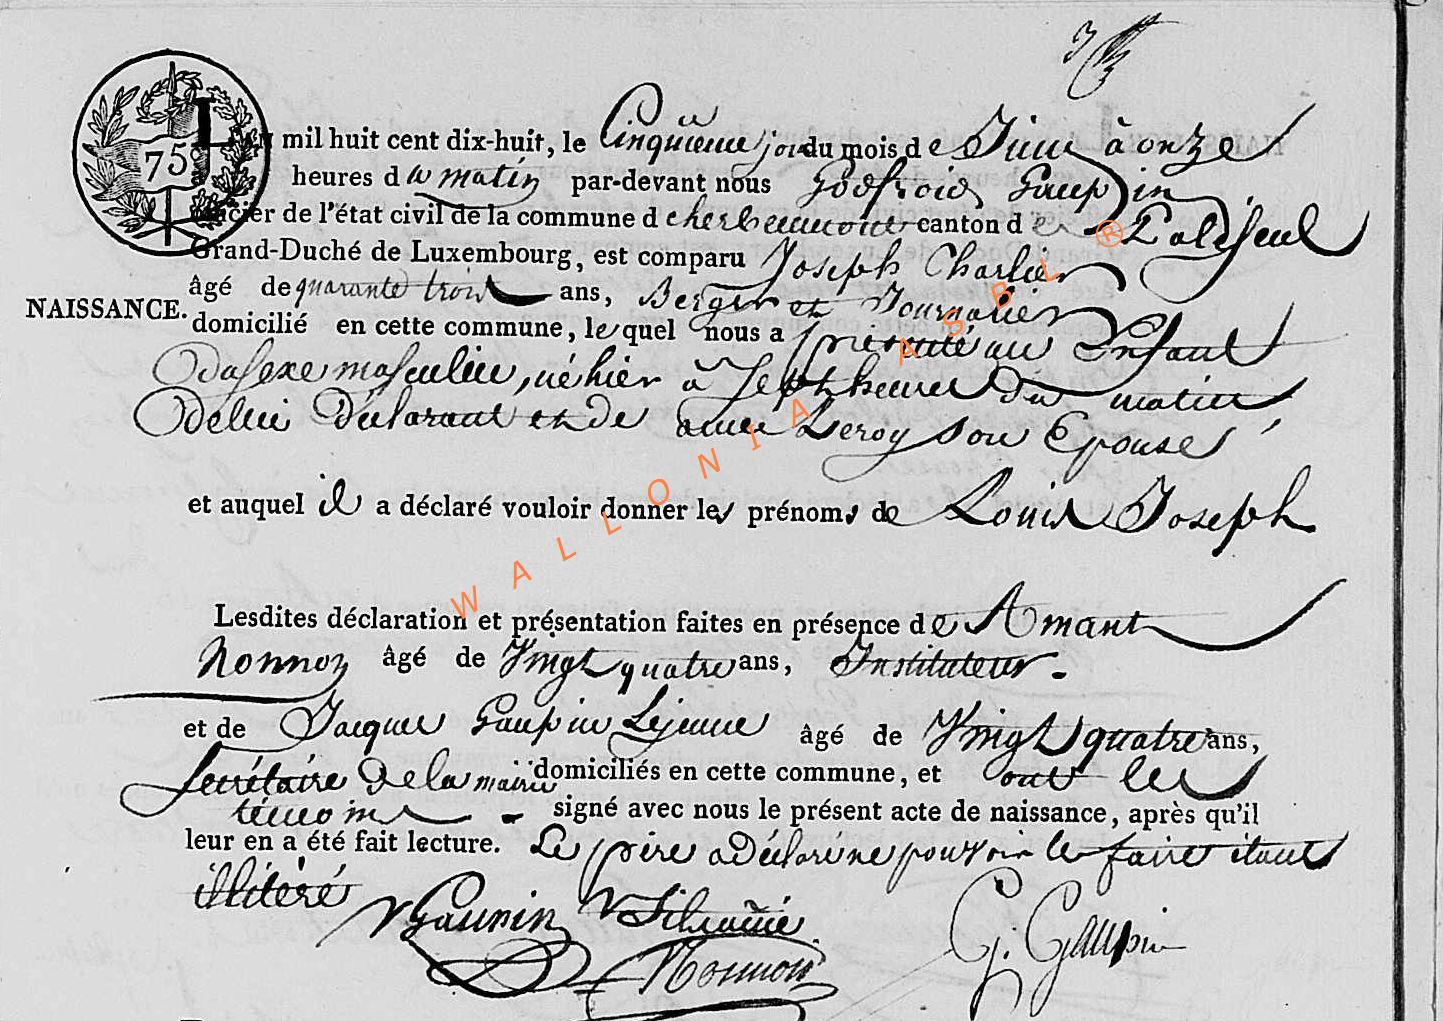 75
L mil huit cent dix-huit, le Cinquieme jour du mois de Juin à onze
heures du matin par-devant nous Godfroid Gaupin
officier de l'état civil de la commune d'herbeumont canton de Paliseul
Grand-Duché de Luxembourg, est comparu Joseph Charlier
âgé de quarante trois ans, Berger et Journalier
NAISSANCE.
domicilié en cette commune, lequel nous a présenté un Enfant
Du sexe masculin, né hier à Sept heures Du matin
De lui Déclarant et de anne Leroy son Epouse
et auquel il a déclaré vouloir donner les prénoms de Louis Joseph
Lesdites déclaration et présentation faites en présence de Amant
Nonnon âgé de Vingt quatre ans, Instituteur.
et de Jacques Gaupin Lejeune âgé de Vingt quatre ans,
Secrétaire De la mairie domiciliés en cette commune, et ont les
témoins signé avec nous le présent acte de naissance, après qu'il
leur en a été fait lecture. Le père a Déclaré ne pouvoir le faire étant
illitéré
Gaupin
Nonnon
G. Gaupin
WALLONIA ASBL ®